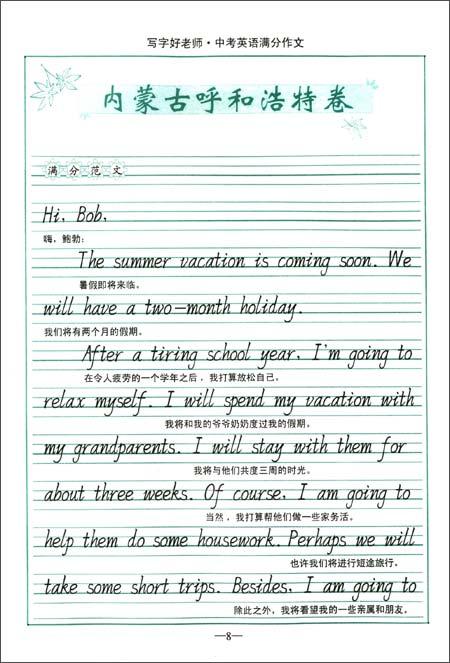 写字好老师·中考英语满分作文
内蒙古呼和浩特卷
满分范文
Hi, Bob,
嗨，鲍勃：
The summer vacation is coming soon. We
暑假即将来临。
will have a two-month holiday.
我们将有两个月的假期。
After a tiring school year, I'm going to
在令人疲劳的一个学年之后，我打算放松自己。
relax myself. I will spend my vacation with
我将和我的爷爷奶奶度过我的假期。
my grandparents. I will stay with them for
我将与他们共度三周的时光。
about three weeks. Of course, I am going to
当然，我打算帮他们做一些家务活。
help them do some housework. Perhaps we will
也许我们将进行短途旅行。
take some short trips. Besides, I am going to
除此之外，我将看望我的一些亲属和朋友。
—8—